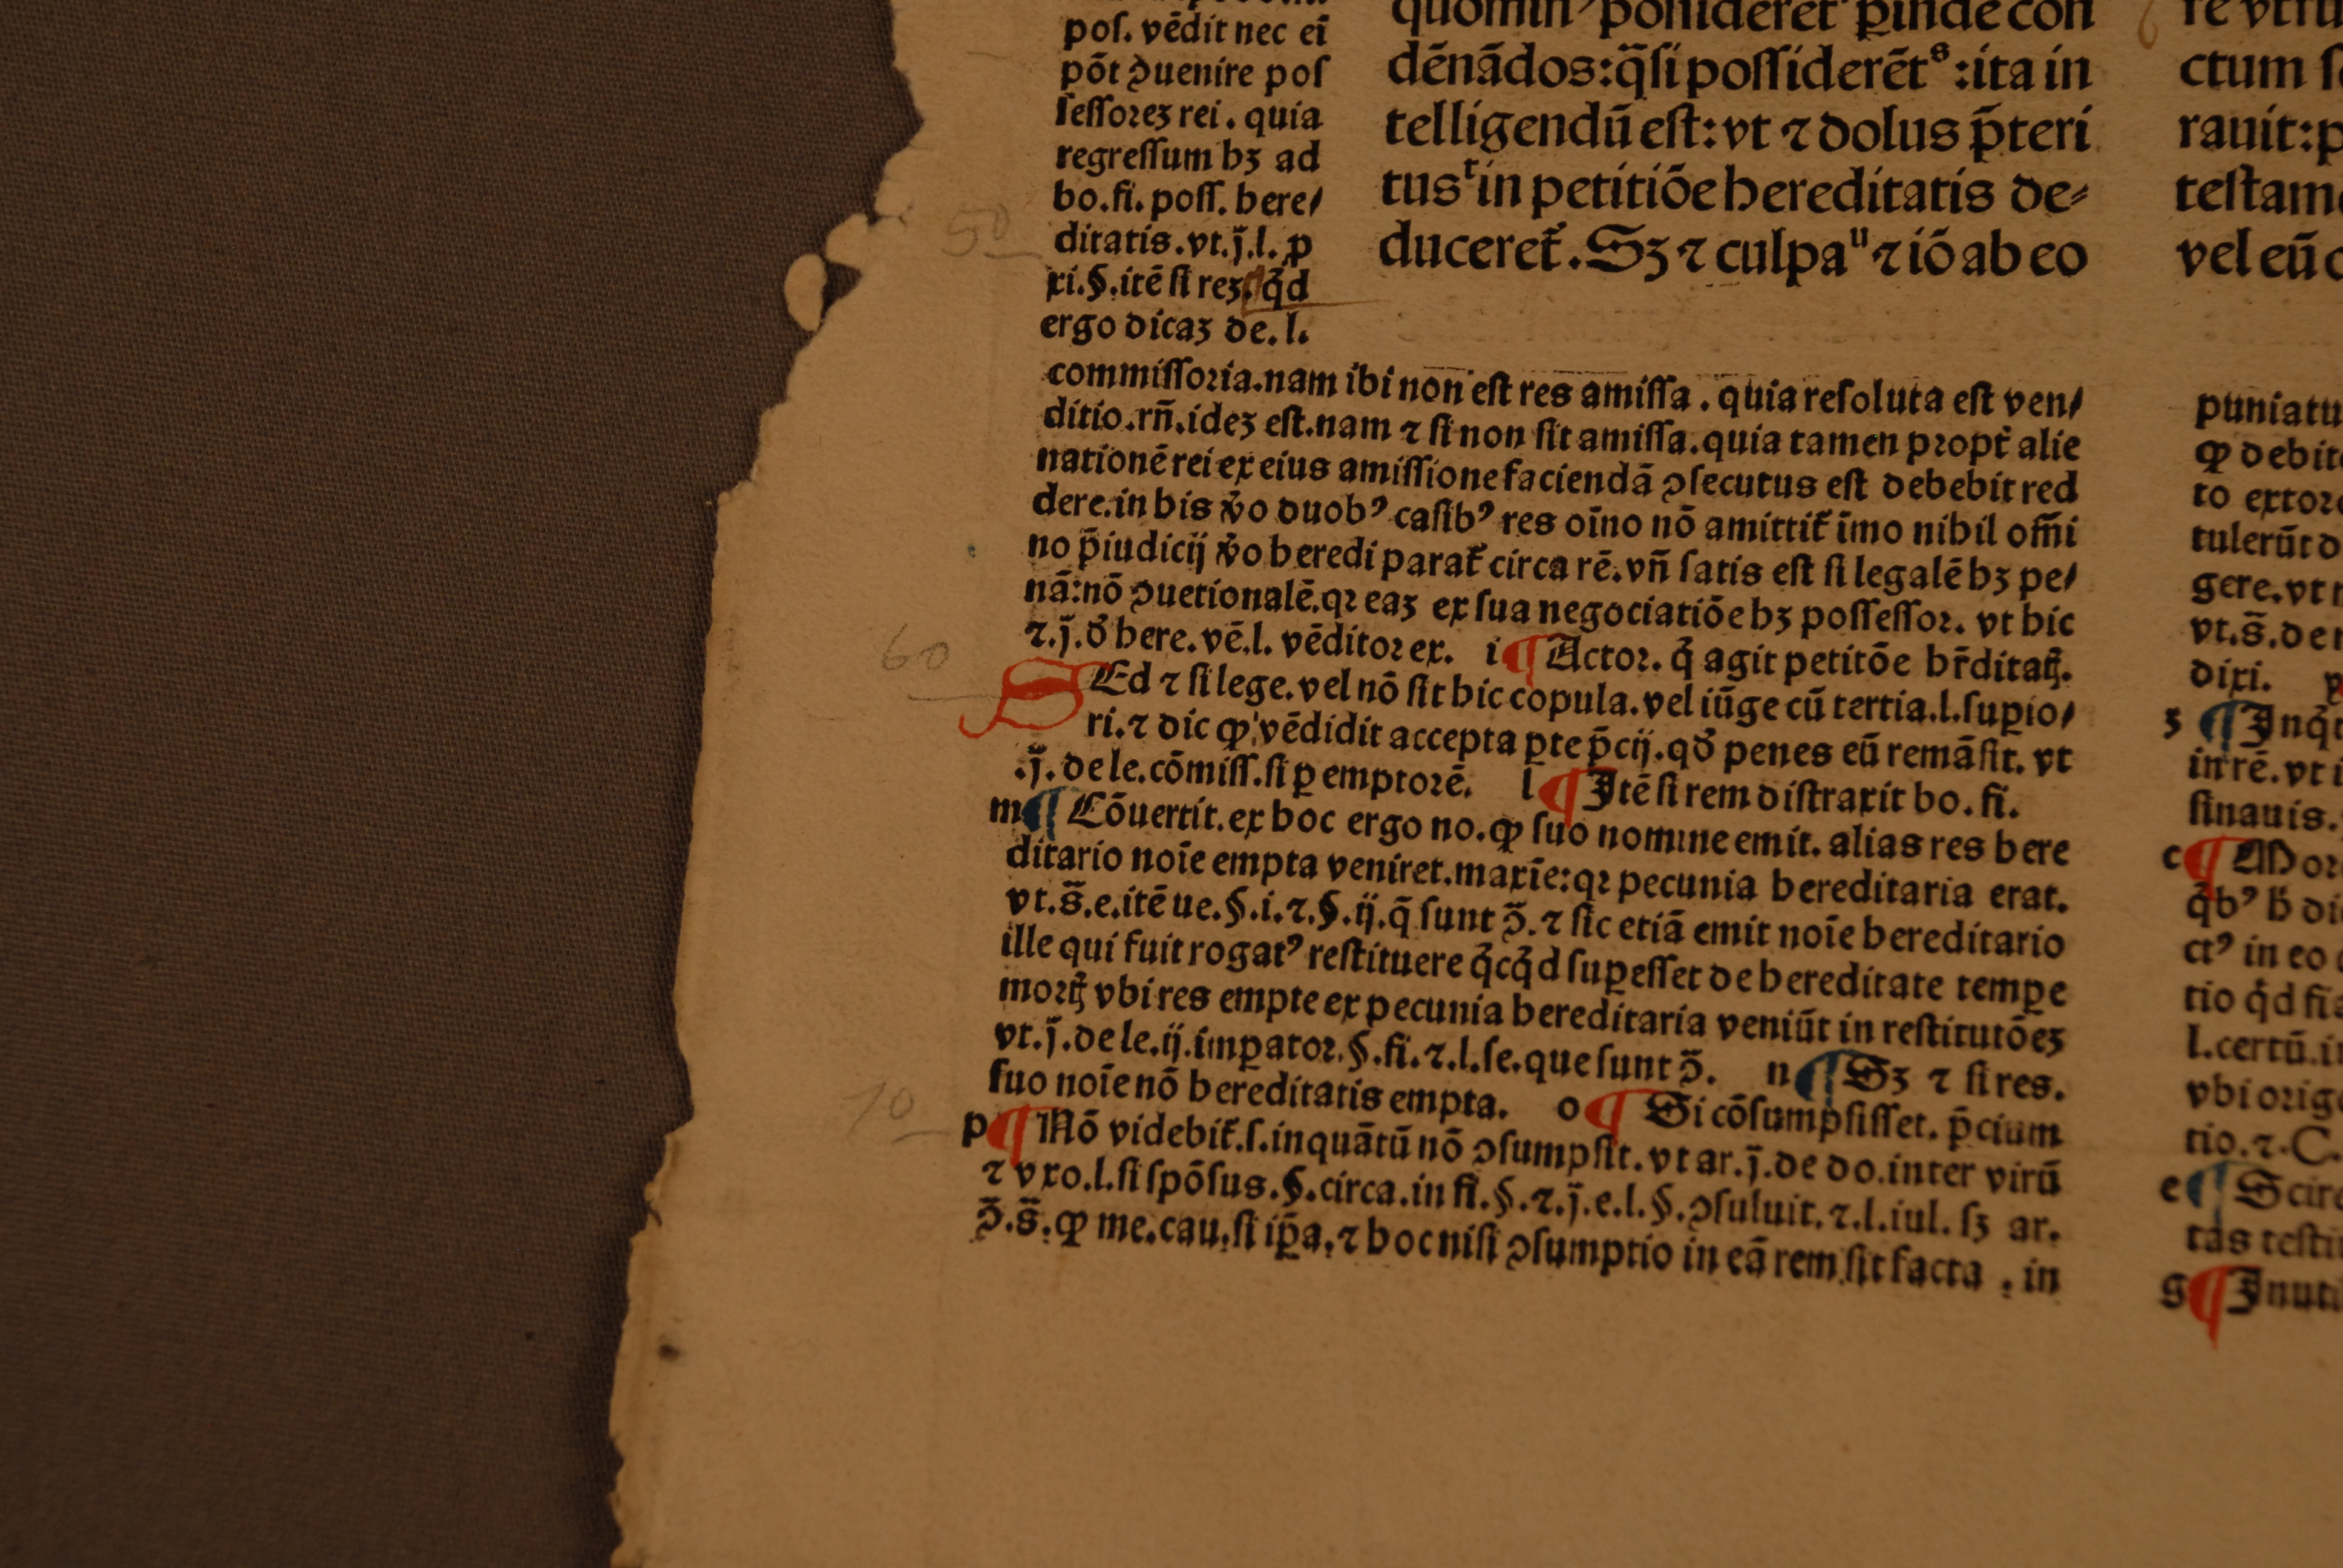 poſ. vēdit nec ei
pōt ɔuenire poſ
ſeſſoreʒ rei. quia
regreſſum hʒ ad
bo.fi. poſſ. here/
ditatis.vt.j̄.l. ꝑ
xi.§.itē ſi reʒ. qd
ergo dicaʒ de. l.
quomin' poſſideret ꝑinde con
dēnādos:q̄ſi poſſiderētˢ:ita in
telligendū eſt:vt ⁊ dolus p̄teri
tusᵗ in petitiōe hereditatis de⸗
duceret̄. Sʒ ⁊ culpaᵘ ⁊ iō ab eo
commiſſoria.nam ibi non eſt res amiſſa. quia reſoluta eſt ven/
ditio.rn̄.ideʒ eſt.nam ⁊ ſi non ſit amiſſa.quia tamen propt̄ alie
nationē rei ex eius amiſſione faciendā ɔſecutus eſt debebit red
dere.in his v̄o duobꝰ caſibꝰ res oīno nō amittit̄ īmo nihil om̄i
no p̄iudicij v̄o heredi parat̄ circa rē.vn̄ ſatis eſt ſi legalē hʒ pe/
nā:nō ɔuetionalē.qꝛ eaʒ ex ſua negociatiōe hʒ poſſeſſor. vt hic
⁊.j̄.đ here.vē.l. vēditor ex. i ¶ Actor. q̄ agit petitōe hr̄ditaꝭ.
SEd ⁊ ſi lege.vel nō ſit hic copula.vel iūge cū tertia.l.ſuꝑio/
ri.⁊ dic ꝙ vēdidit accepta ꝑte p̄cij.qđ penes eū remāſit. vt
.j̄. de le.cōmiſſ.ſi ꝑ emptorē. l ¶ Itē ſi rem diſtraxit bo. fi.
m ¶ Cōuertit.ex hoc ergo no.ꝙ ſuo nomine emit. alias res here
ditario noīe empta veniret.maxīe:qꝛ pecunia hereditaria erat.
vt.s̄.e.itē ue.§.i.⁊.§.ij.q̄ ſunt ɔ̄.⁊ ſic etiā emit noīe hereditario
ille qui fuit rogatꝰ reſtituere q̄cq̄d ſuꝑeſſet de hereditate temꝑe
morꝭ vbi res empte ex pecunia hereditaria veniūt in reſtitutōeʒ
vt.j̄.de le.ij.imꝑator.§.fi.⁊.l.ſe.que ſunt ɔ̄. n ¶ Sʒ ⁊ ſi res.
ſuo noīe nō hereditatis empta. o ¶ Si cōſumpſiſſet. p̄cium
p ¶ Nō videbit̄.ſ.inquātū nō ɔſumpſit.vt ar.j̄.de do.inter virū
⁊ vxo.l.ſi ſpōſus.§.circa.in fi.§.⁊.j̄.e.l.§.ɔſuluit.⁊.l.iul. ſʒ ar.
ɔ̄.s̄.ꝙ me.cau.ſi ip̄a.⁊ hoc niſi ɔſumptio in eā rem ſit facta , in
50
60
70
ctum
rauit:
teſtam
vel eū
puniatu
ꝙ debit
to extor
tulerūt
gere.vt
vt.s̄.de
dixi.
in rē.vt
ſinauis.